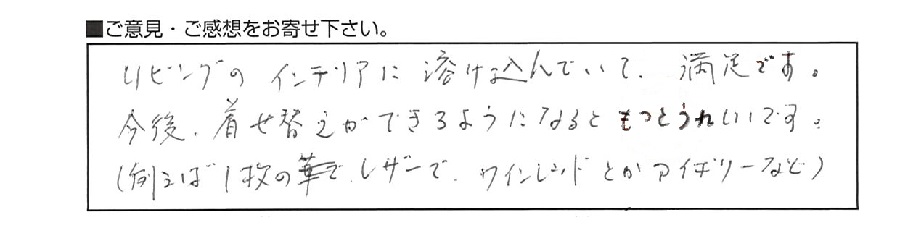 ■ご意見・ご感想をお寄せ下さい。
リビングのインテリアに溶け込んでいて、満足です。
今後、着せ替えができるようになるともっとうれしいです。
(例えば1枚の革で、レザーで、ワインレッドとかアイボリーなど)